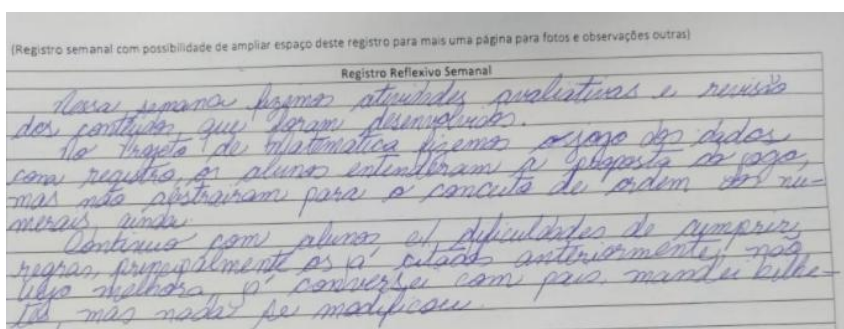 (Registro semanal com possibilidade de ampliar espaço deste registro para mais uma página para fotos e observações outras)
Registro Reflexivo Semanal
Nessa semana fizemos atividades avaliativas e revisão
dos conteúdos que foram desenvolvidos.
No Projeto de Matemática fizemos o jogo dos dados
com registro, os alunos entenderam a proposta do jogo,
mas não abstrairam para o conceito de ordem dos nu-
merais ainda.
Continuo com alunos c/ dificuldades de cumprir
regras, principalmente os já citados anteriormente, não
vejo melhora, já conversei com pais, mandei bilhe-
tes, mas nada se modificou.